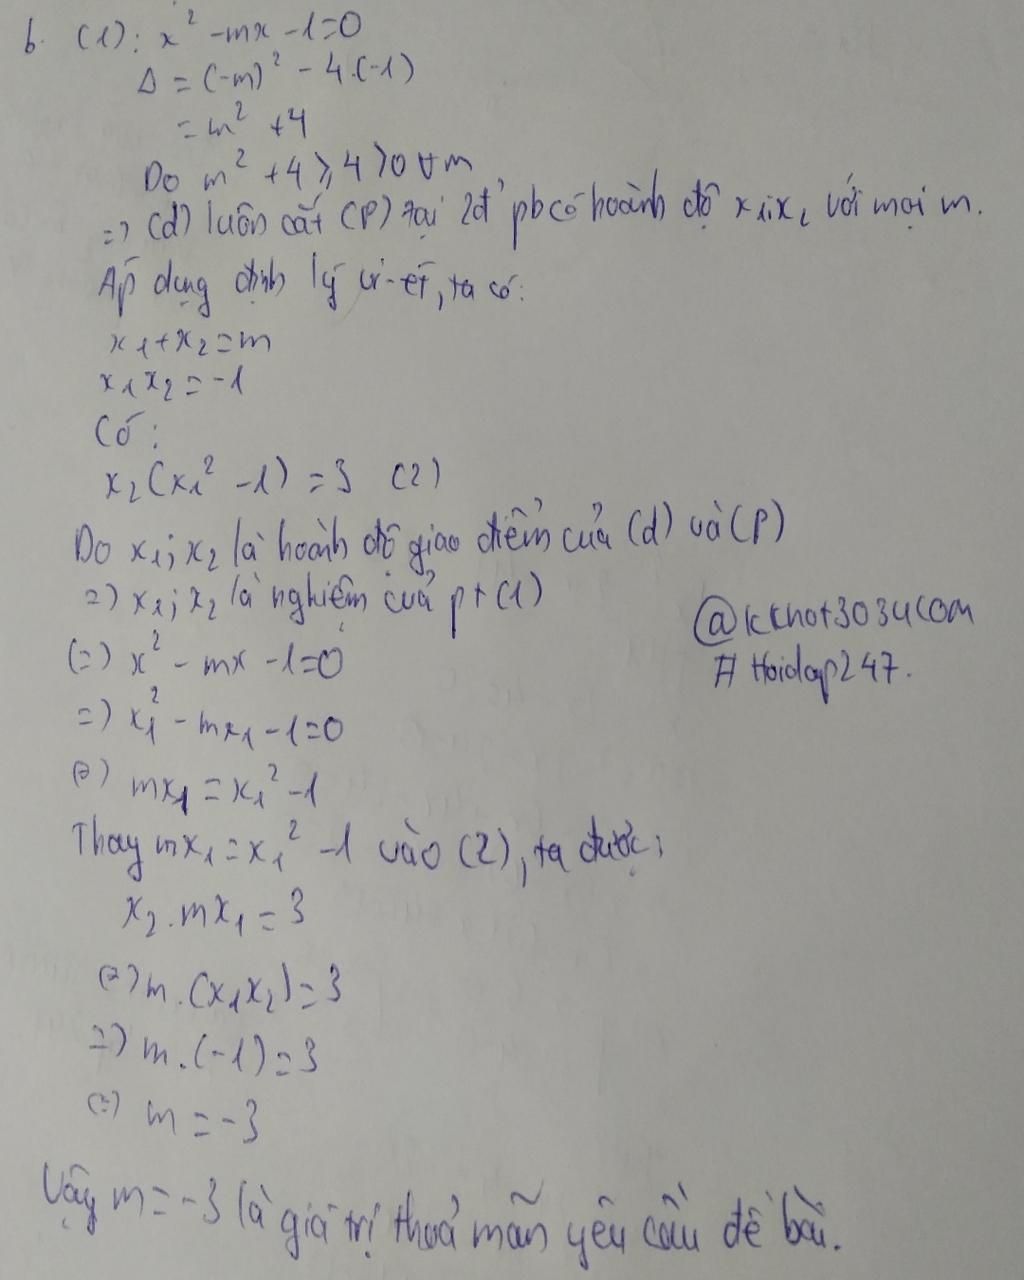 b. (1): x² - mx - 1 = 0
Δ = (-m)² - 4.(-1)
= m² + 4
Do m² + 4 ⩾ 4 > 0 ∀m
=> (d) luôn cắt (P) tại 2đ' pb có hoành độ x₁; x₂ với mọi m.
Áp dụng định lý vi-ét, ta có:
x₁ + x₂ = m
x₁x₂ = -1
Có:
x₂(x₁² - 1) = 3 (2)
Do x₁; x₂ là hoành độ giao điểm của (d) và (P)
=> x₁; x₂ là nghiệm của pt (1)
@kthot3034com
(=) x² - mx - 1 = 0
# Hoidap247.
=) x₁² - mx₁ - 1 = 0
(=) mx₁ = x₁² - 1
Thay mx₁ = x₁² - 1 vào (2), ta được:
x₂.mx₁ = 3
(=) m.(x₁x₂) = 3
=) m.(-1) = 3
(=) m = -3
Vậy m = -3 là giá trị thoả mãn yêu cầu đề bài.